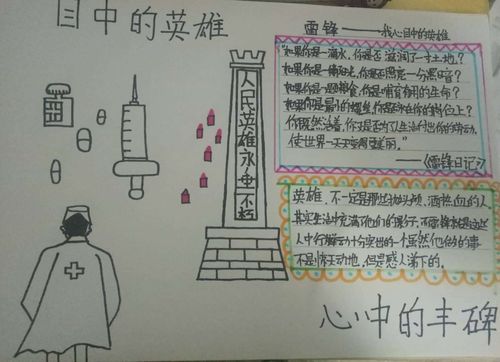 目中的英雄
雷锋——我心目中的英雄
"如果你是一滴水，你是否滋润了一寸土地？
如果你是一缕阳光，你是否照亮一分黑暗？
如果你是一颗粮食，你是否哺育有用的生命？
如果你是最小的螺丝，你是否永在你的岗位上？
你既然活着，你又是否为了人生付出你的劳动，
使世界一天天变得更美丽。"
——《雷锋日记》
人民英雄永垂不朽
英雄，不一定是那些抛头颅，洒热血的人
其实生活中充满他们的影子，而雷锋就是这些
人中行 十分突出的一个虽然他做的事
不是惊天动地，但是感人 下的。
心中的丰碑